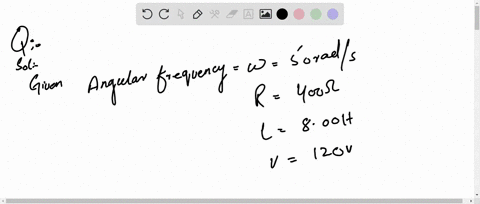 Q:-
Sol:-
Given Angular frequency = ω = 50 rad/s
R = 400Ω
L = 8.00H
V = 120V